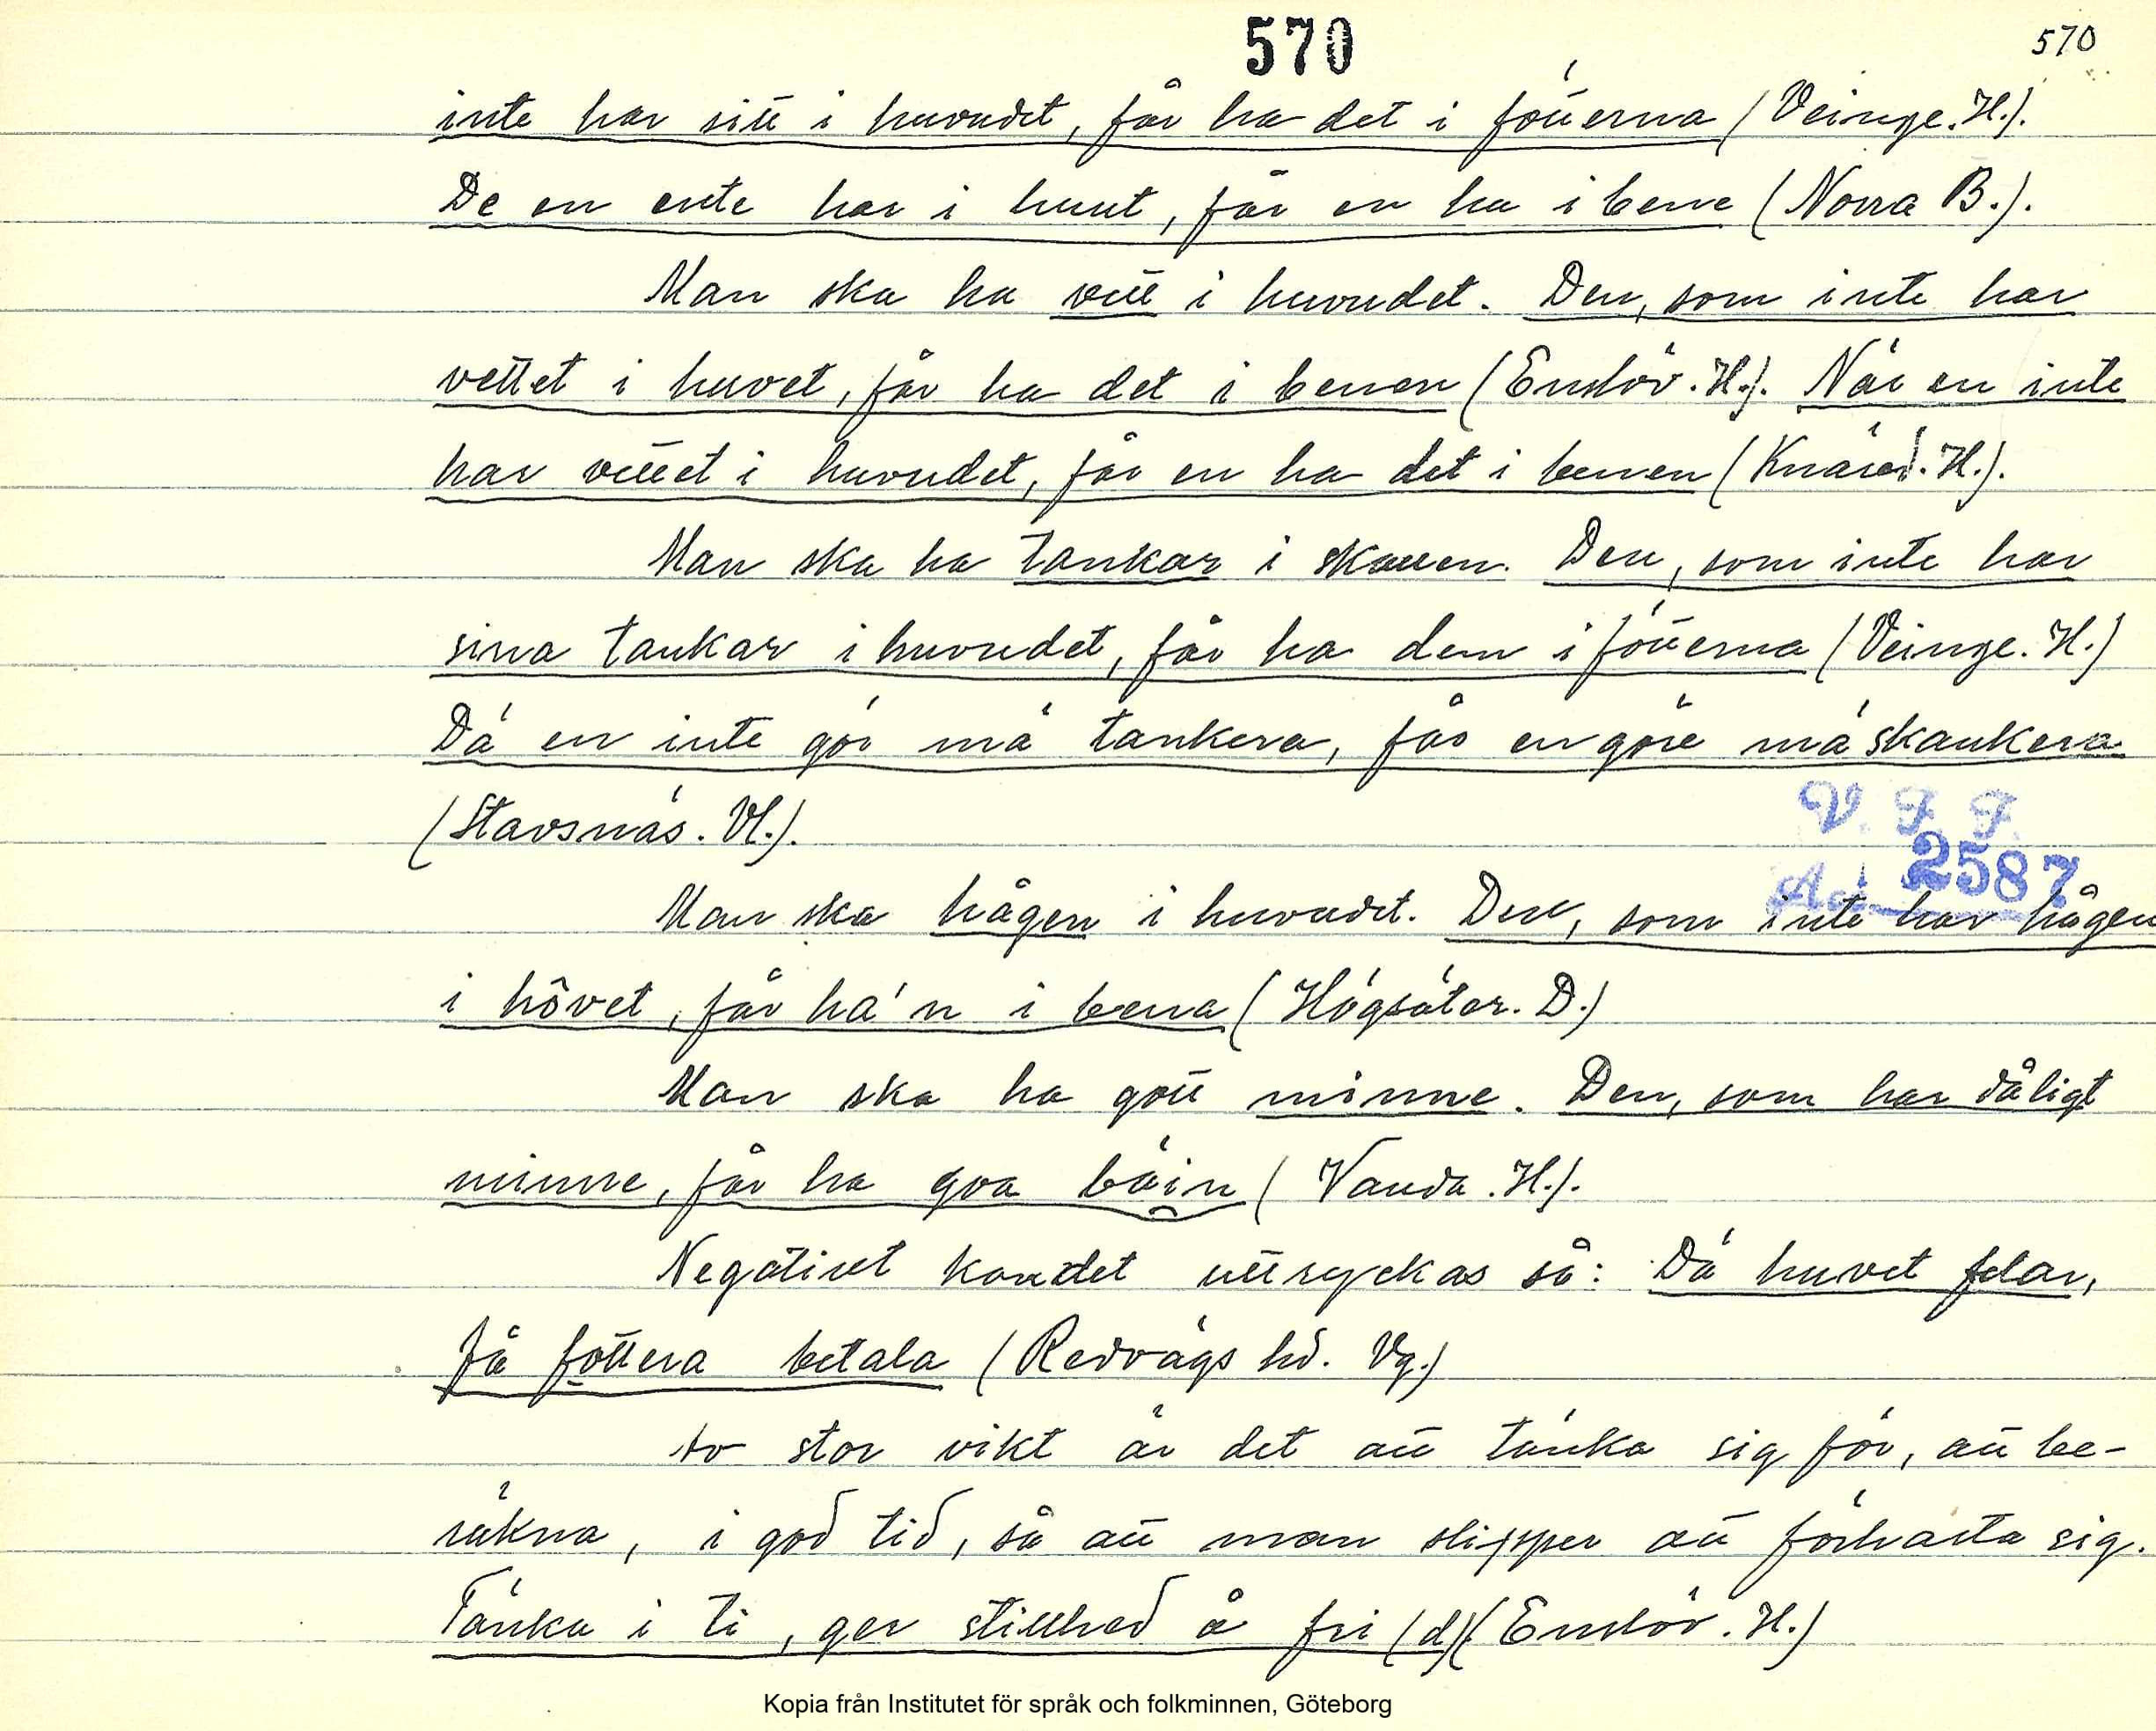 570
570
inte har sitt i huvudet, får ha det i fötterna (Veinge. H.).
De en ente har i huut, får en ha i bene (Norra B.).
Man ska ha vett i huvudet. Den, som inte har
vettet i huvet, får ha det i benen (Enslöv. H.). När en inte
har vettet i huvudet, får en ha det i benen (Knäred. H.).
Man ska ha tankar i skallen. Den, som inte har
sina tankar i huvudet, får ha dem i fötterna (Veinge. H.)
Dä en inte gör mä tankera, får en göre mä skankera
(Stavsnäs. Vl.).
V. F. F.
Acc. 2587
Man ska hågen i huvudet. Den, som inte har hågen
i hôvet, får ha'n i bena (Högsäter. D.)
Man ska ha gott minne. Den, som har dåligt
minne, får ha goa bäin (Vanda. H.).
Negativt kan det uttryckas så: Dä huvet felar,
få föttera betala (Redvägs hd. Vg.)
Av stor vikt är det att tänka sig för, att be-
räkna, i god tid, så att man slipper att förhasta sig.
Tänka i ti, ger stillhed å fri (d) (Enslöv. H.)
Kopia från Institutet för språk och folkminnen, Göteborg